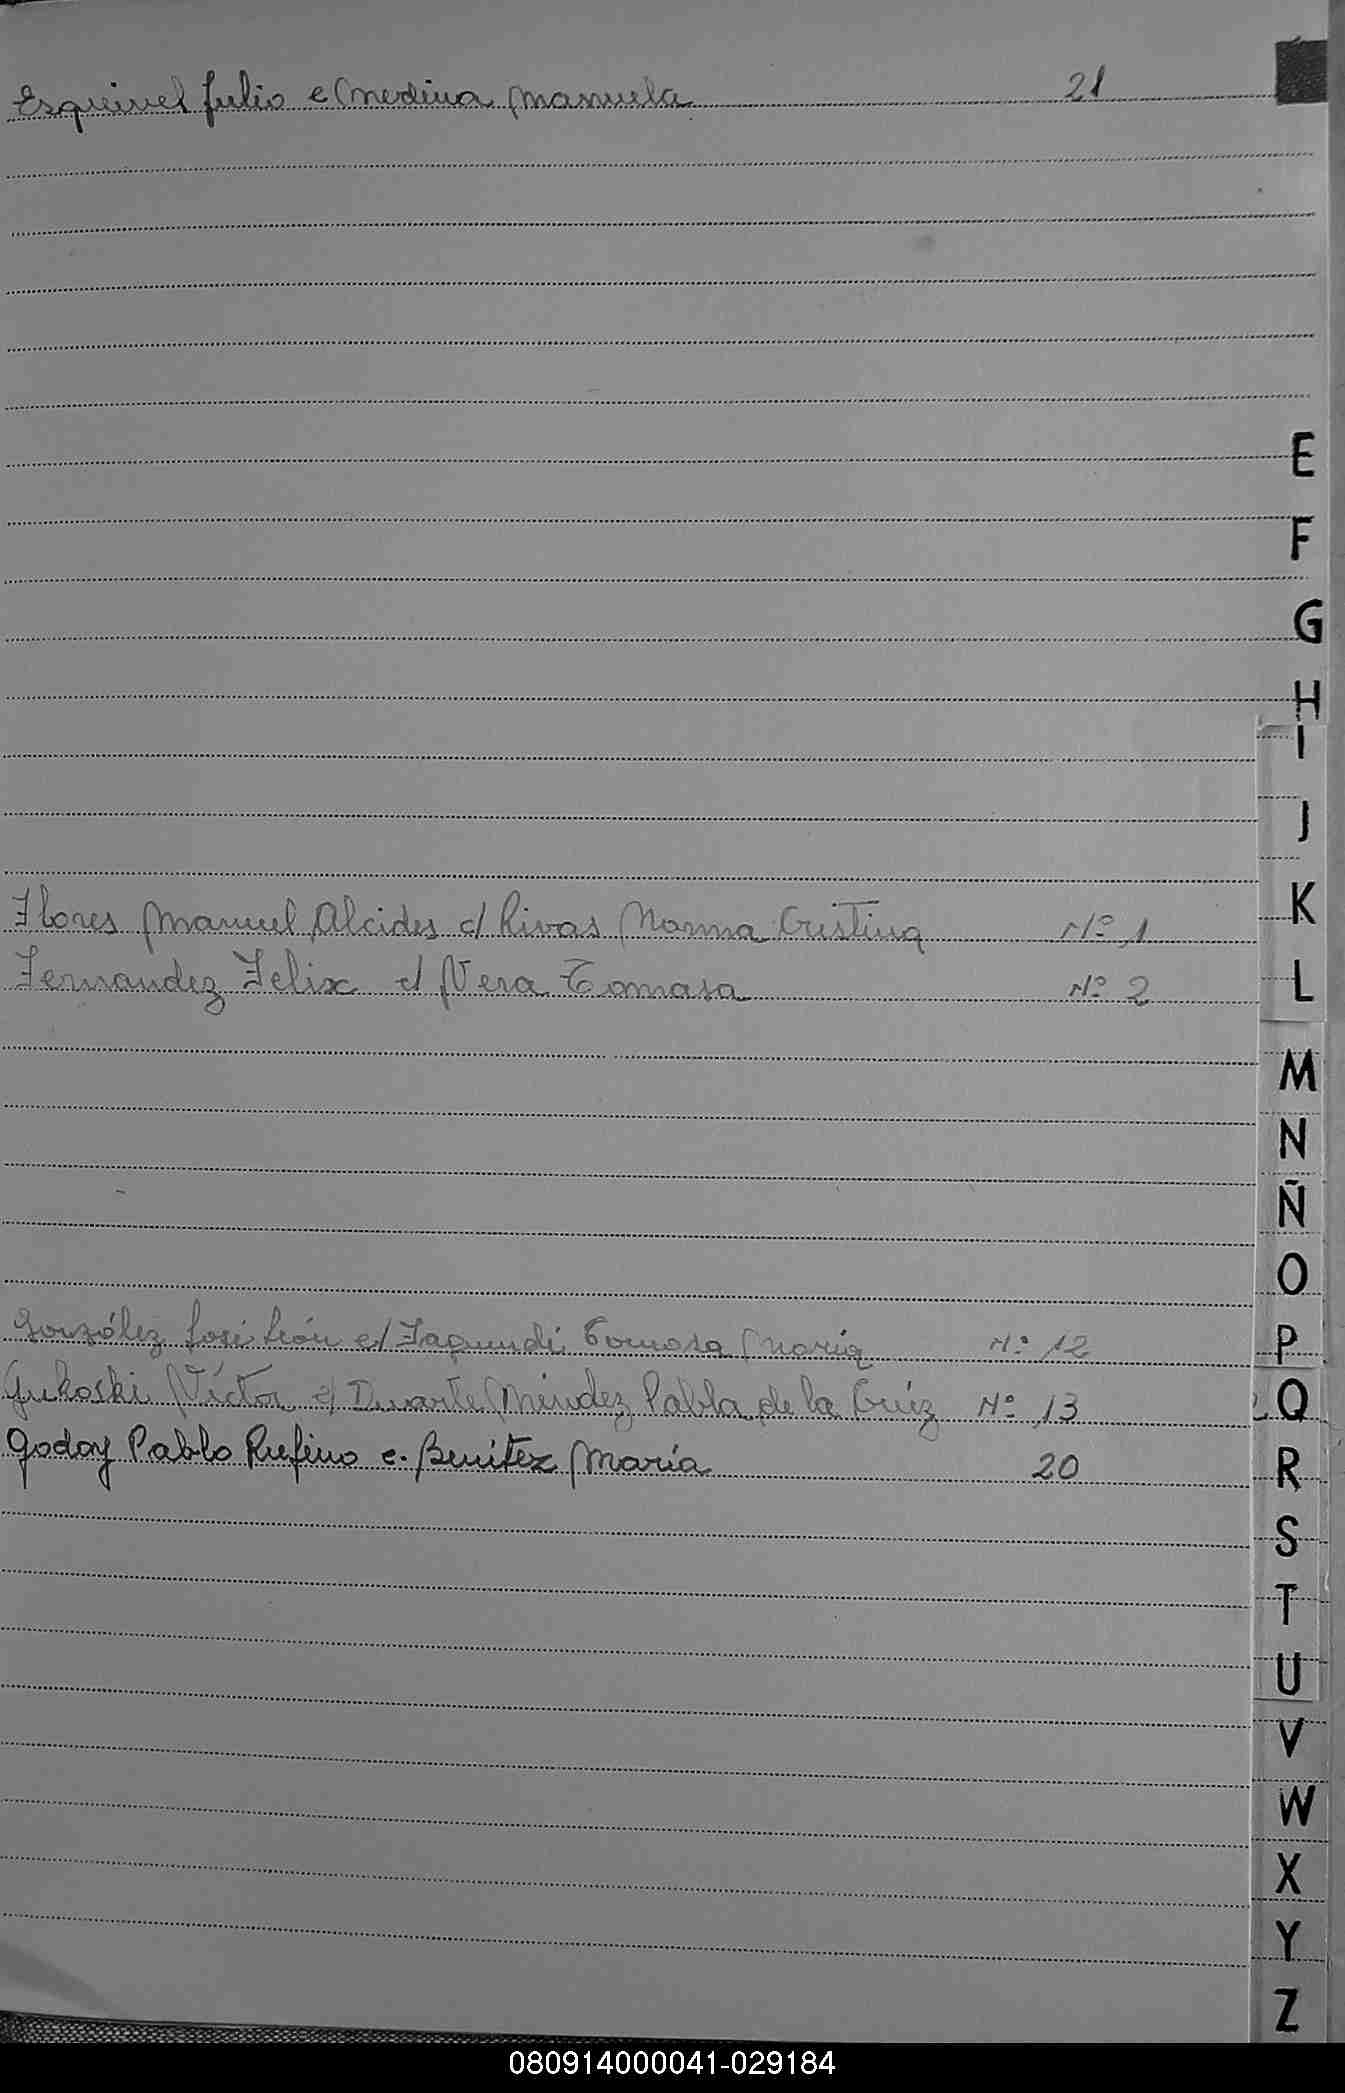 Esquivel Julio c Medina Manuela 21
E
F
G
H
I
J
Flores Manuel Alcides c/ Rivas Norma Cristina Nº 1
K
Fernandez Felix c/ Vera Tomasa Nº 2
L
M
N
Ñ
O
González José León c/ Tomasa María Nº 12
P
Gukoski Víctor c/ Duarte Méndez Pabla de la Crúz Nº 13
Q
Godoy Pablo Rufino c. Benítez María 20
R
S
T
U
V
W
X
Y
Z
080914000041-029184